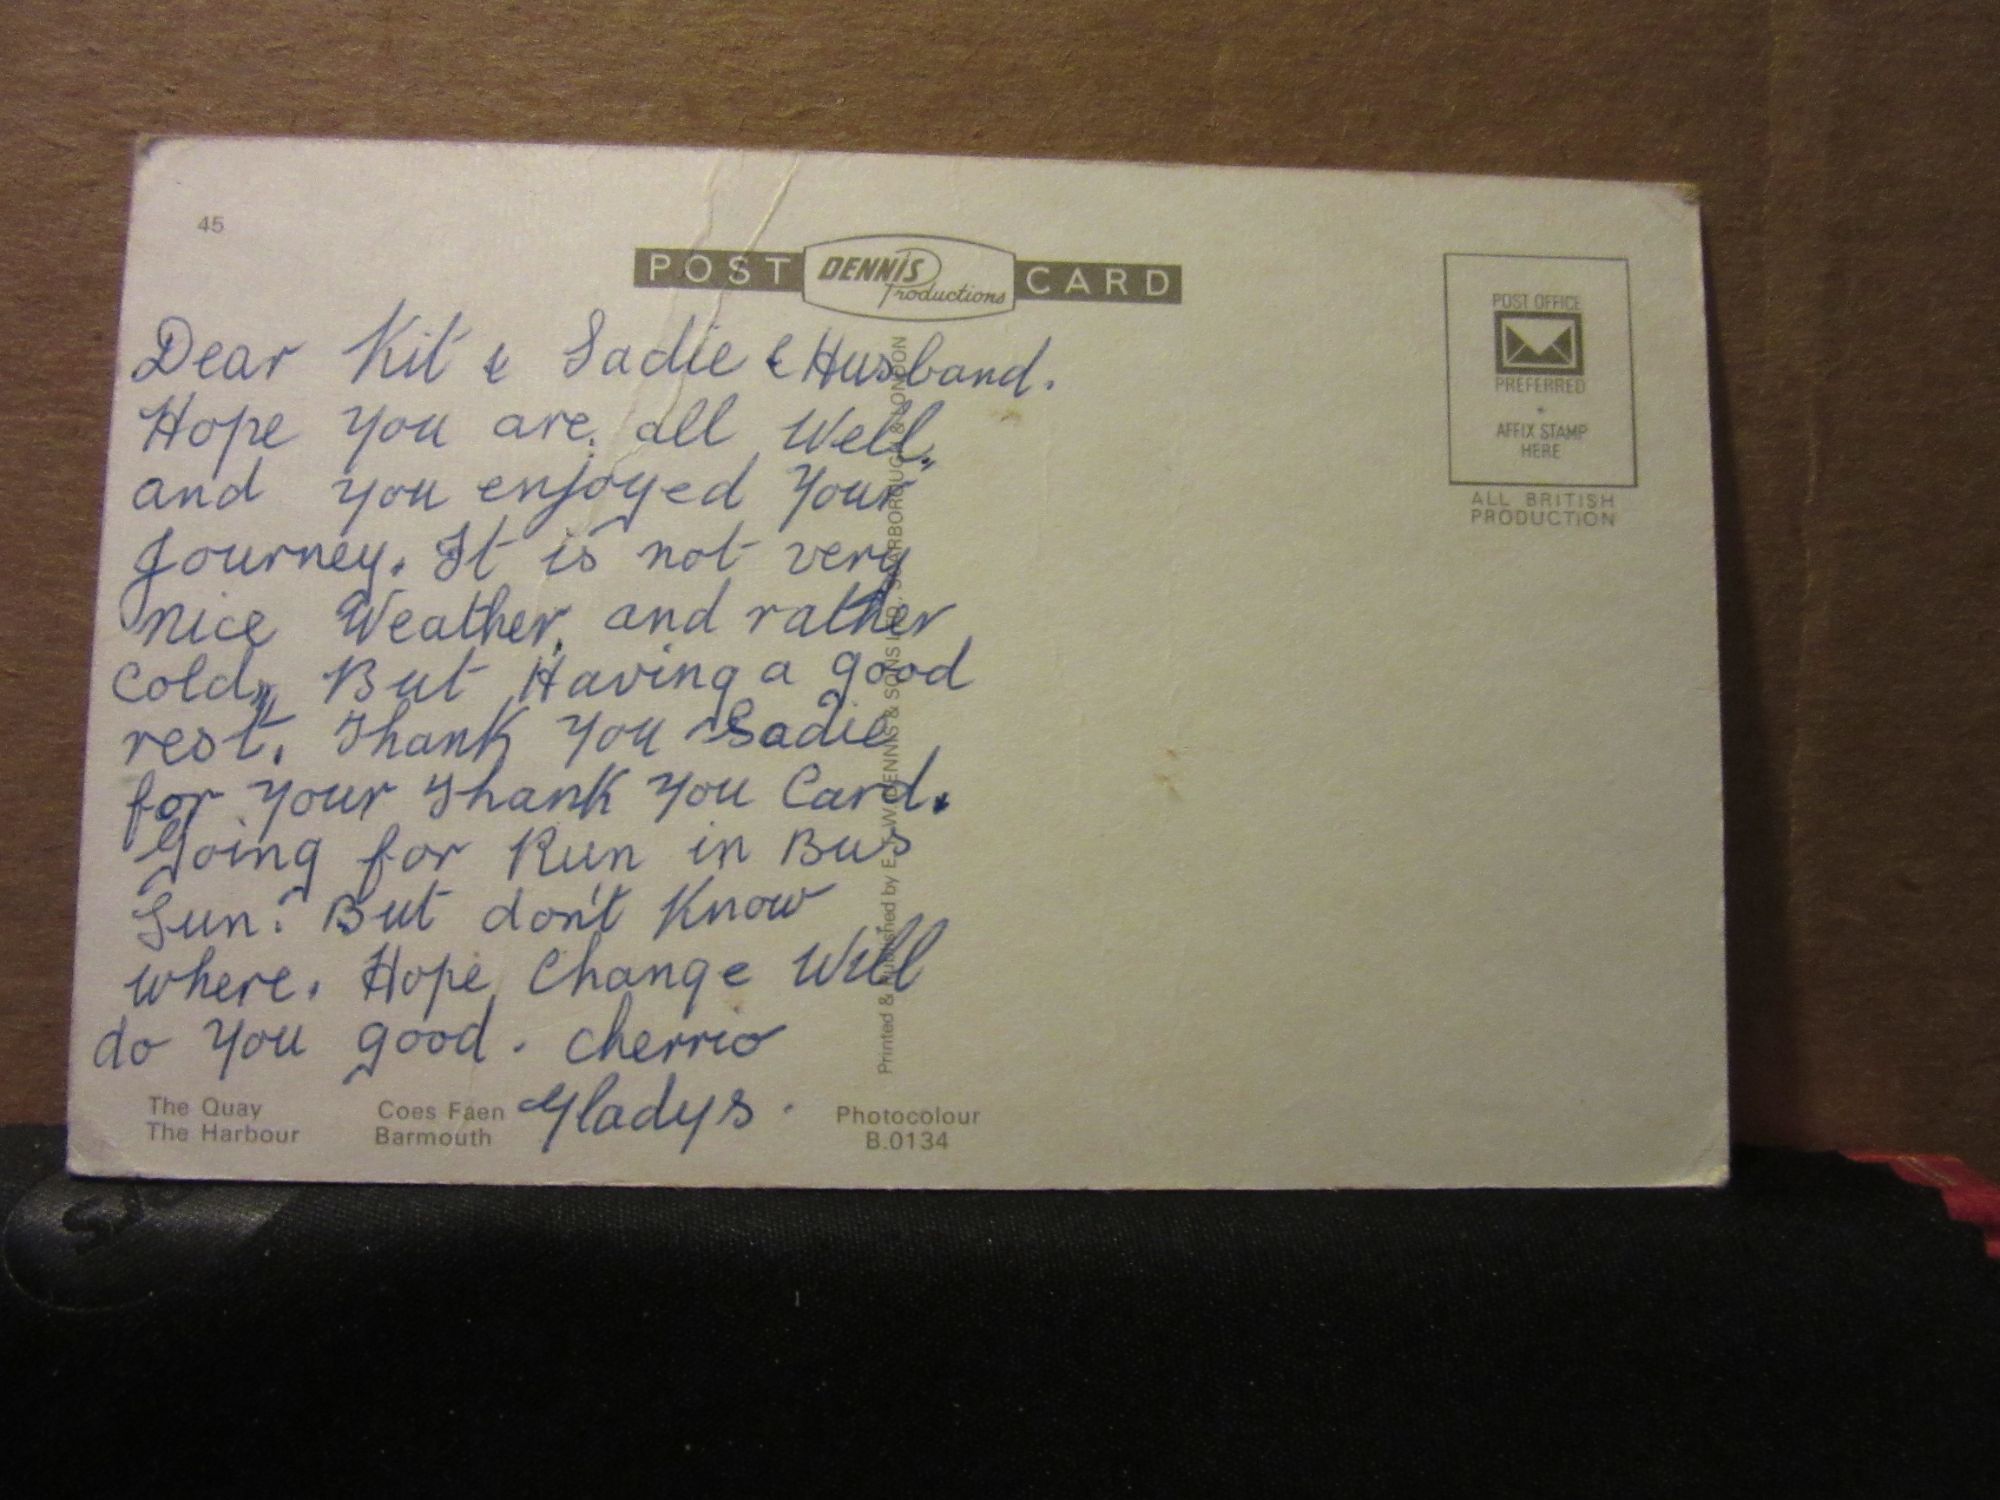 45
POST DENNIS Productions CARD
POST OFFICE
PREFERRED
AFFIX STAMP
HERE
ALL BRITISH
PRODUCTION
Dear Kit & Sadie & Husband.
Hope you are. all Well,
and you enjoyed your
Journey. It is not very
nice Weather, and rather
Cold,, But Having a good
rest. Thank you Sadie
for your Thank you Card.
Going for Run in Bus
Sun. But don't Know
where. Hope Change Will
do you good. cherrio
Gladys.
The Quay
The Harbour
Coes Faen
Barmouth
Photocolour
B.0134
Printed & Published by E. T. W. DENNIS & SONS LTD., SCARBOROUGH & LONDON